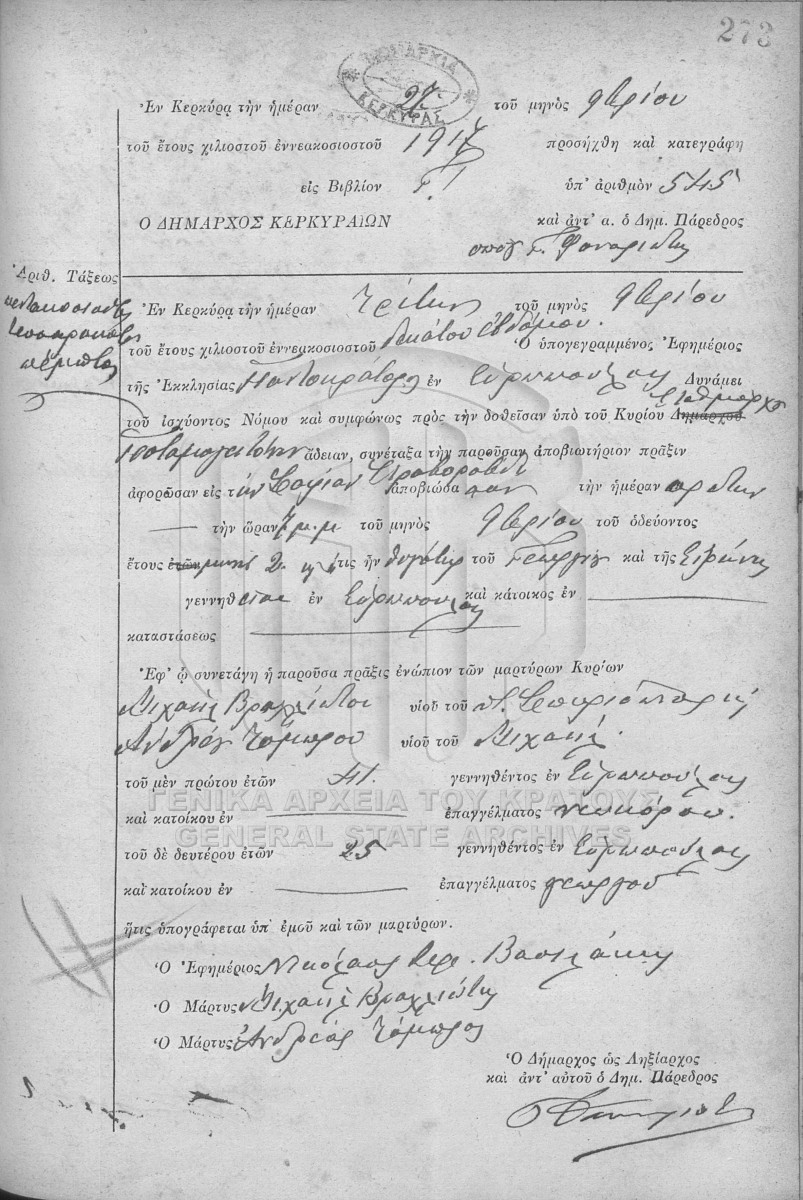 273
ΔΗΜΑΡΧΙΑ
ΚΕΡΚΥΡΑΣ
Ἐν Κερκύρᾳ τὴν ἡμέραν 27 τοῦ μηνὸς 9βρίου
τοῦ ἔτους χιλιοστοῦ ἐννεακοσιοστοῦ 1917 προσήχθη καὶ κατεγράφη
εἰς Βιβλίον Γ. Ι ὑπ' ἀριθμὸν 545
Ο ΔΗΜΑΡΧΟΣ ΚΕΡΚΥΡΑΙΩΝ καὶ ἀντ' α. ὁ Δημ. Πάρεδρος
Ἀριθ. Τάξεως
πεντακοσιοστὸς
τεσσαρακοστὸς
πέμπτος
Ἐν Κερκύρᾳ τὴν ἡμέραν Τρίτην τοῦ μηνὸς 9βρίου
τοῦ ἔτους χιλιοστοῦ ἐννεακοσιοστοῦ δεκάτου ἑβδόμου. Ὁ ὑπογεγραμμένος Ἐφημέριος
τῆς Ἐκκλησίας Παντοκράτορος ἐν Εὐρωπούλοις Δυνάμει
τοῦ ἰσχύοντος Νόμου καὶ συμφώνως πρὸς τὴν δοθεῖσαν ὑπὸ τοῦ Κυρίου Δημάρχου Σταθμάρχου
Ποταμογειτόνων ἄδειαν, συνέταξα τὴν παροῦσαν ἀποβιωτήριον πρᾶξιν
ἀφορῶσαν εἰς τὴν Σοφίαν ἀποβιώσασαν τὴν ἡμέραν
τὴν ὥραν 7 μ.μ τοῦ μηνὸς 9βρίου τοῦ ὁδεύοντος
ἔτους ἐτῶν μηνῶν 2. ἥτις ἦν θυγάτηρ τοῦ Γεωργίου καὶ τῆς Εἰρήνης
γεννηθεῖσα ἐν Εὐρωπούλοις καὶ κάτοικος ἐν
καταστάσεως
Ἐφ' ᾧ συνετάγη ἡ παροῦσα πρᾶξις ἐνώπιον τῶν μαρτύρων Κυρίων
Μιχαὴλ Βραχλιώτου υἱοῦ τοῦ π. Σπυρίδωνος
Ἀνδρέου Τόμπρου υἱοῦ τοῦ Μιχαήλ.
τοῦ μὲν πρώτου ἐτῶν 41. γεννηθέντος ἐν Εὐρωπούλοις
καὶ κατοίκου ἐν ἐπαγγέλματος νεωκόρου.
τοῦ δὲ δευτέρου ἐτῶν 25 γεννηθέντος ἐν Εὐρωπούλοις
καὶ κατοίκου ἐν ἐπαγγέλματος γεωργοῦ
ἥτις ὑπογράφεται ὑπ' ἐμοῦ καὶ τῶν μαρτύρων.
Ὁ Ἐφημέριος Νικόλαος Ιερ. Βασιλάκης
Ὁ Μάρτυς Μιχαὴλ Βραχλιώτης
Ὁ Μάρτυς Ἀνδρέας Τόμπρος
Ὁ Δήμαρχος ὡς Ληξίαρχος
καὶ ἀντ' αὐτοῦ ὁ Δημ. Πάρεδρος
ΓΕΝΙΚΑ ΑΡΧΕΙΑ ΤΟΥ ΚΡΑΤΟΥΣ
GENERAL STATE ARCHIVES